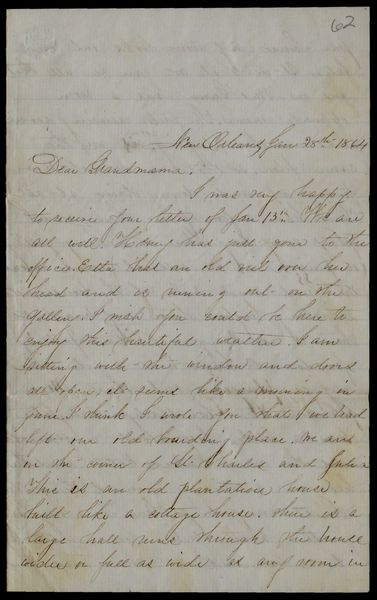 62
New Orleans Jan 28th 1864
Dear Grandmama.
I was very happy
to receive your letter of Jan 13th. We are
all well. Henry has just gone to the
office. Etta has an old veil over her
head and is running out on the
gallery. I wish you could be here to
enjoy this beautiful weather. I am
sitting with the window and doors
all open, it seems like a morning in
june. I think I wrote you that we had
left our old boarding place. we are
on the corner of St. Charles and Julia
This is an old plantation house
built like a cottage house. there is a
large hall runs through the house
wider or full as wide as any room in